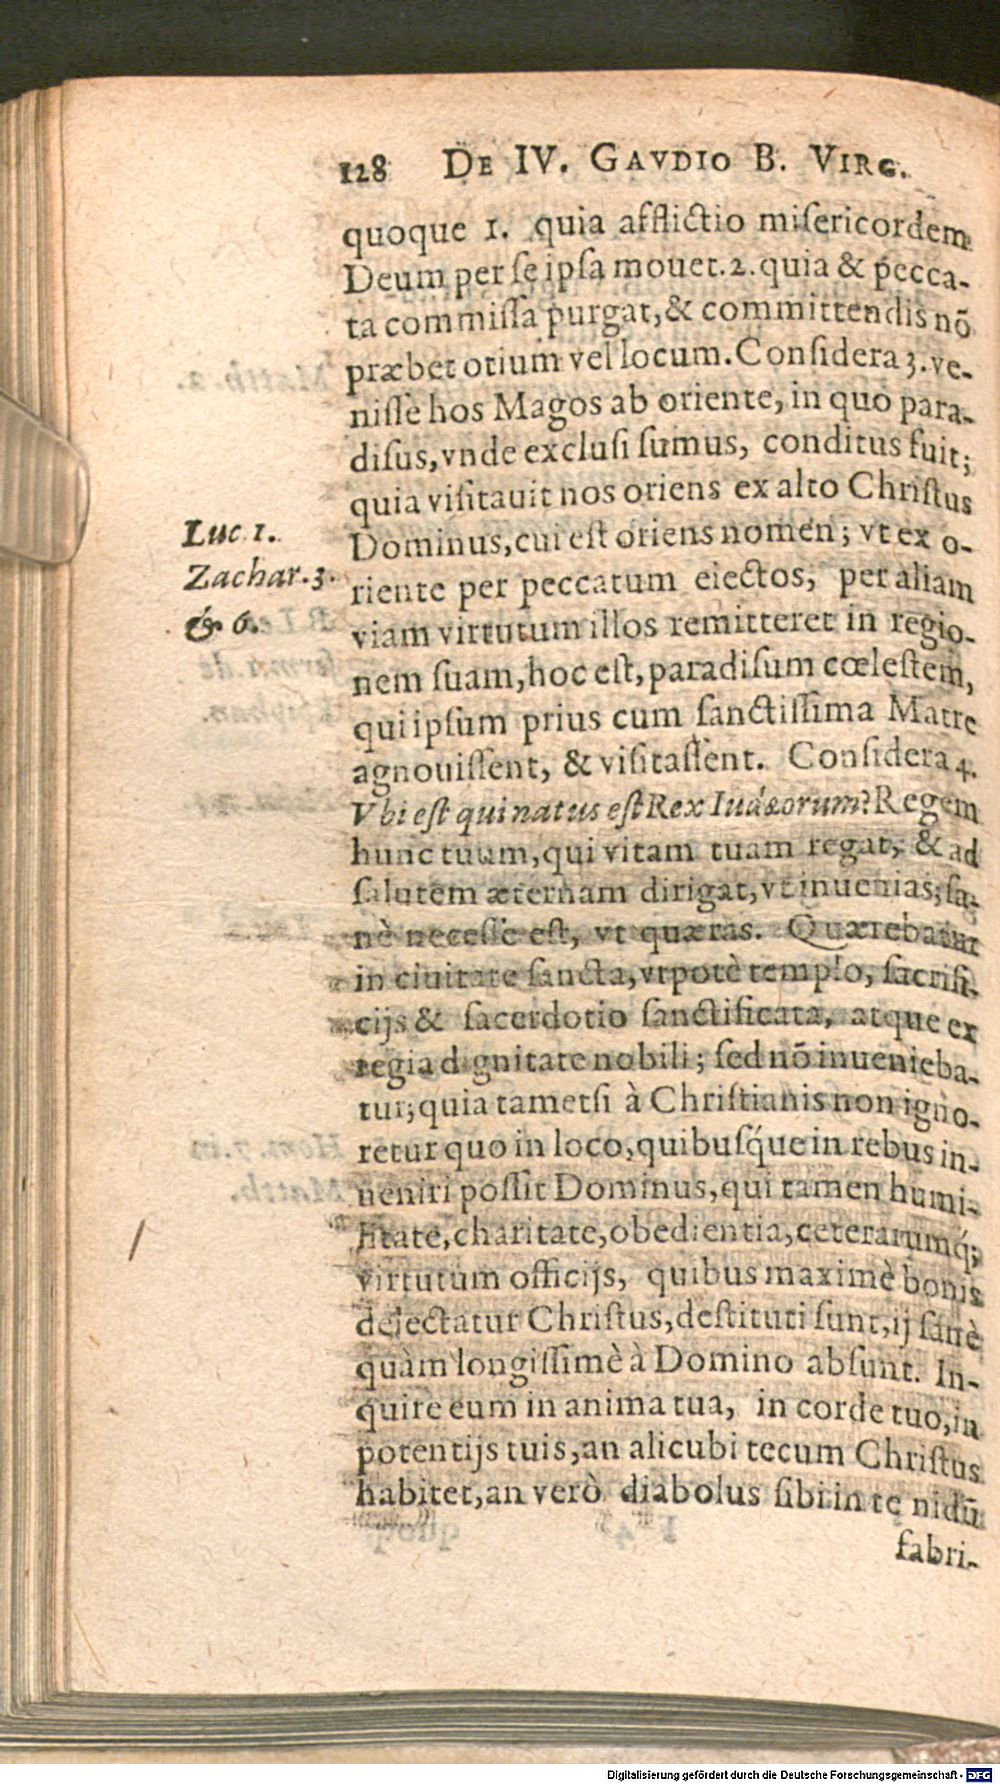 128 DE IV. GAVDIO B. VIRG.
quoque 1. quia afflictio misericordem
Deum per se ipsa mouet. 2. quia & pecca-
ta commissa purgat, & committendis nõ
præbet otium vel locum. Considera 3. ve-
nisse hos Magos ab oriente, in quo para-
disus, vnde exclusi sumus, conditus fuit;
quia visitauit nos oriens ex alto Christus
Luc. 1.
Dominus, cui est oriens nomen; vt ex o-
Zachar. 3.
riente per peccatum eiectos, per aliam
& 6.
viam virtutum illos remitteret in regio-
nem suam, hoc est, paradisum cœlestem,
qui ipsum prius cum sanctissima Matre
agnouissent, & visitassent. Considera 4.
Vbi est qui natus est Rex Iudæorum? Regem
hunc tuum, qui vitam tuam regat, & ad
salutem æternam dirigat, vt inuenias; sa-
nè necesse est, vt quæras. Quærebatur
in ciuitate sancta, vtpotè templo, sacrifi-
cijs & sacerdotio sanctificata, atque ex
regia dignitate nobili; sed nõ inuenieba-
tur; quia tametsi à Christianis non igno-
retur quo in loco, quibusq́ue in rebus in-
ueniri possit Dominus, qui tamen humi-
litate, charitate, obedientia, ceterarumq́;
virtutum officijs, quibus maximè bonis
delectatur Christus, destituti sunt, ij sanè
quàm longissimè à Domino absunt. In-
quire eum in anima tua, in corde tuo, in
potentijs tuis, an alicubi tecum Christus
habitet, an verò diabolus sibi in te nidũ
fabri-
Digitalisierung gefördert durch die Deutsche Forschungsgemeinschaft - DFG